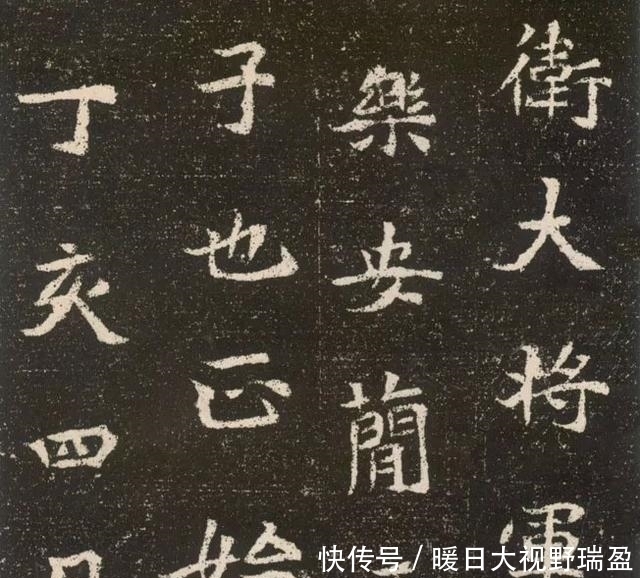 衛大将軍
樂安簡
子也正始
丁亥四月
快传号/暖日大视野瑞盈